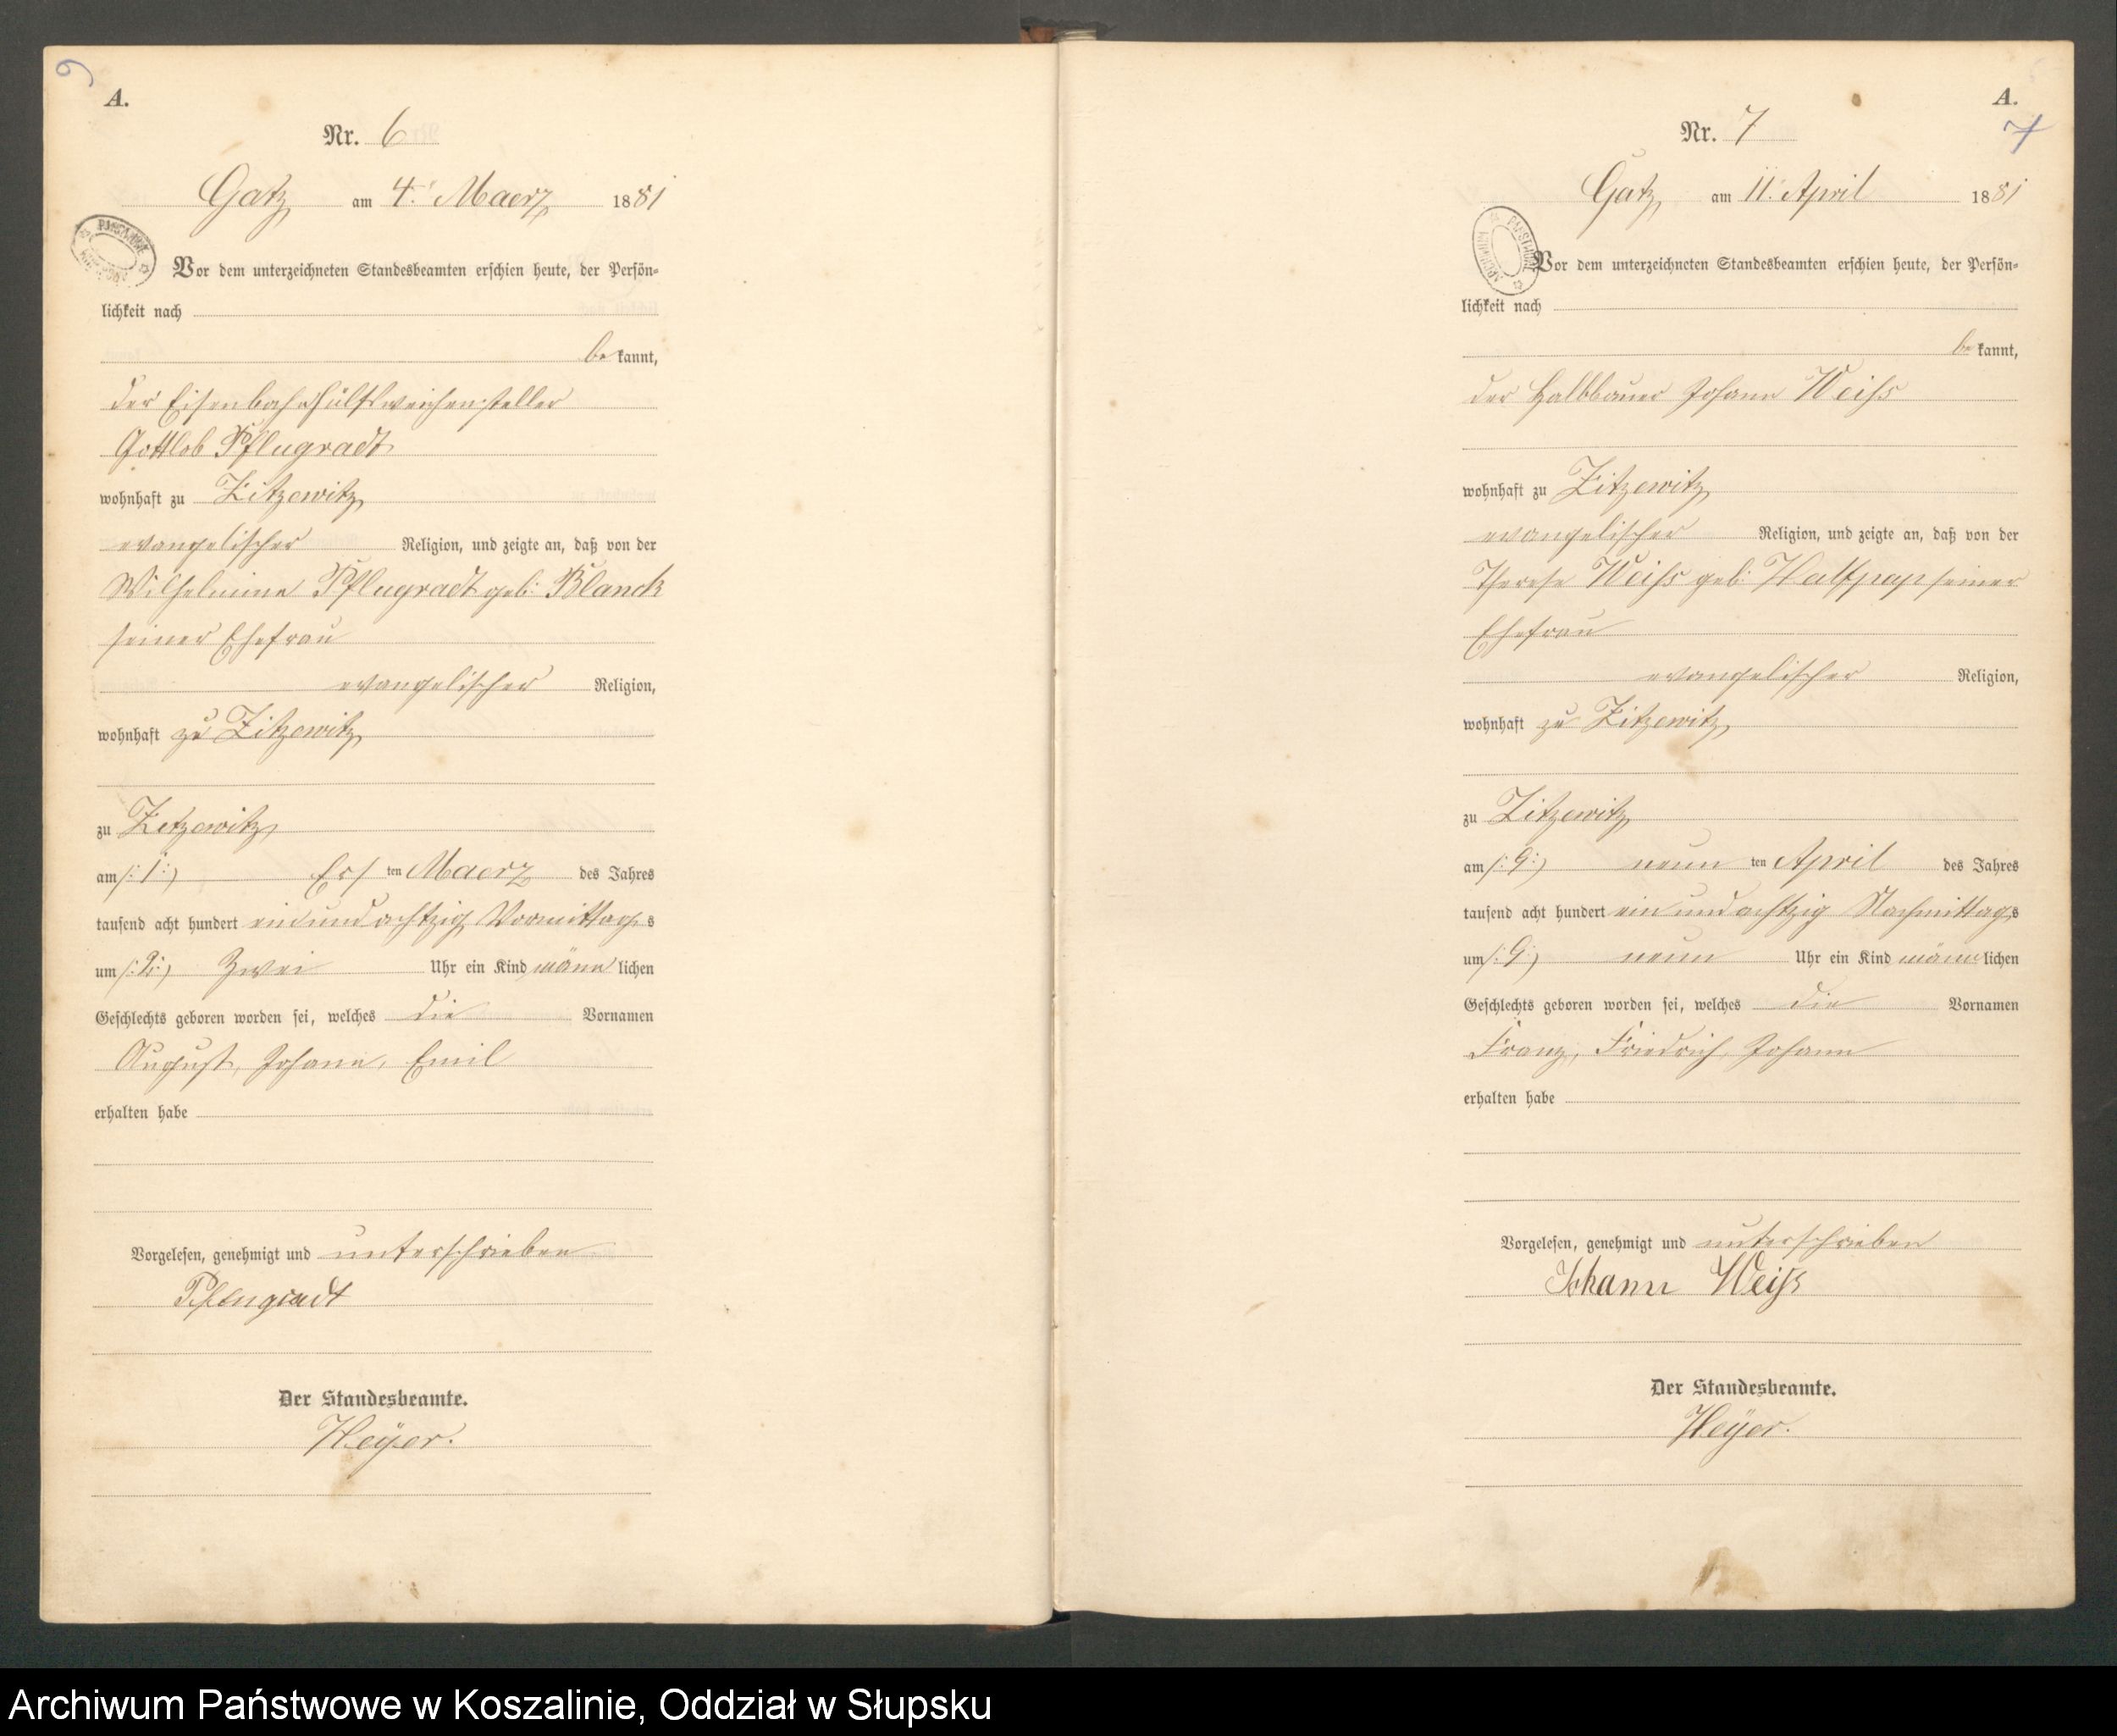 6
A.
Nr. 6
Gatz am 4. Maerz 1881
Vor dem unterzeichneten Standesbeamten erschien heute, der Persön-
lichkeit nach
be kannt,
der Eisenbahnhülfsweichensteller
Gottlob Pflugradt
wohnhaft zu Zitzewitz
evangelischer Religion, und zeigte an, daß von der
Wilhelmine Pflugradt geb: Blanck
seiner Ehefrau
evangelischer Religion,
wohnhaft zu Zitzewitz
zu Zitzewitz
am /:1:/ Ersten Maerz des Jahres
tausend acht hundert ein und achtzig Vormittags
um /:2:/ Zwei Uhr ein Kind männlichen
Geschlechts geboren worden sei, welches die Vornamen
August, Johann, Emil
erhalten habe
Vorgelesen, genehmigt und unterschrieben
Pflugradt
Der Standesbeamte.
Heÿer.
A.
7
Nr. 7
Gatz am 11. April 1881
Vor dem unterzeichneten Standesbeamten erschien heute, der Persön-
lichkeit nach
be kannt,
der Halbbauer Johann Weiss
wohnhaft zu Zitzewitz
evangelischer Religion, und zeigte an, daß von der
Therese Weiss geb: Halfpap seiner
Ehefrau
evangelischer Religion,
wohnhaft zu Zitzewitz
zu Zitzewitz
am /:9:/ neunten April des Jahres
tausend acht hundert ein und achtzig Nachmittags
um /:9:/ neun Uhr ein Kind männlichen
Geschlechts geboren worden sei, welches die Vornamen
Franz, Friedrich, Johann
erhalten habe
Vorgelesen, genehmigt und unterschrieben
Johann Weiss
Der Standesbeamte.
Heÿer.
Archiwum Państwowe w Koszalinie, Oddział w Słupsku